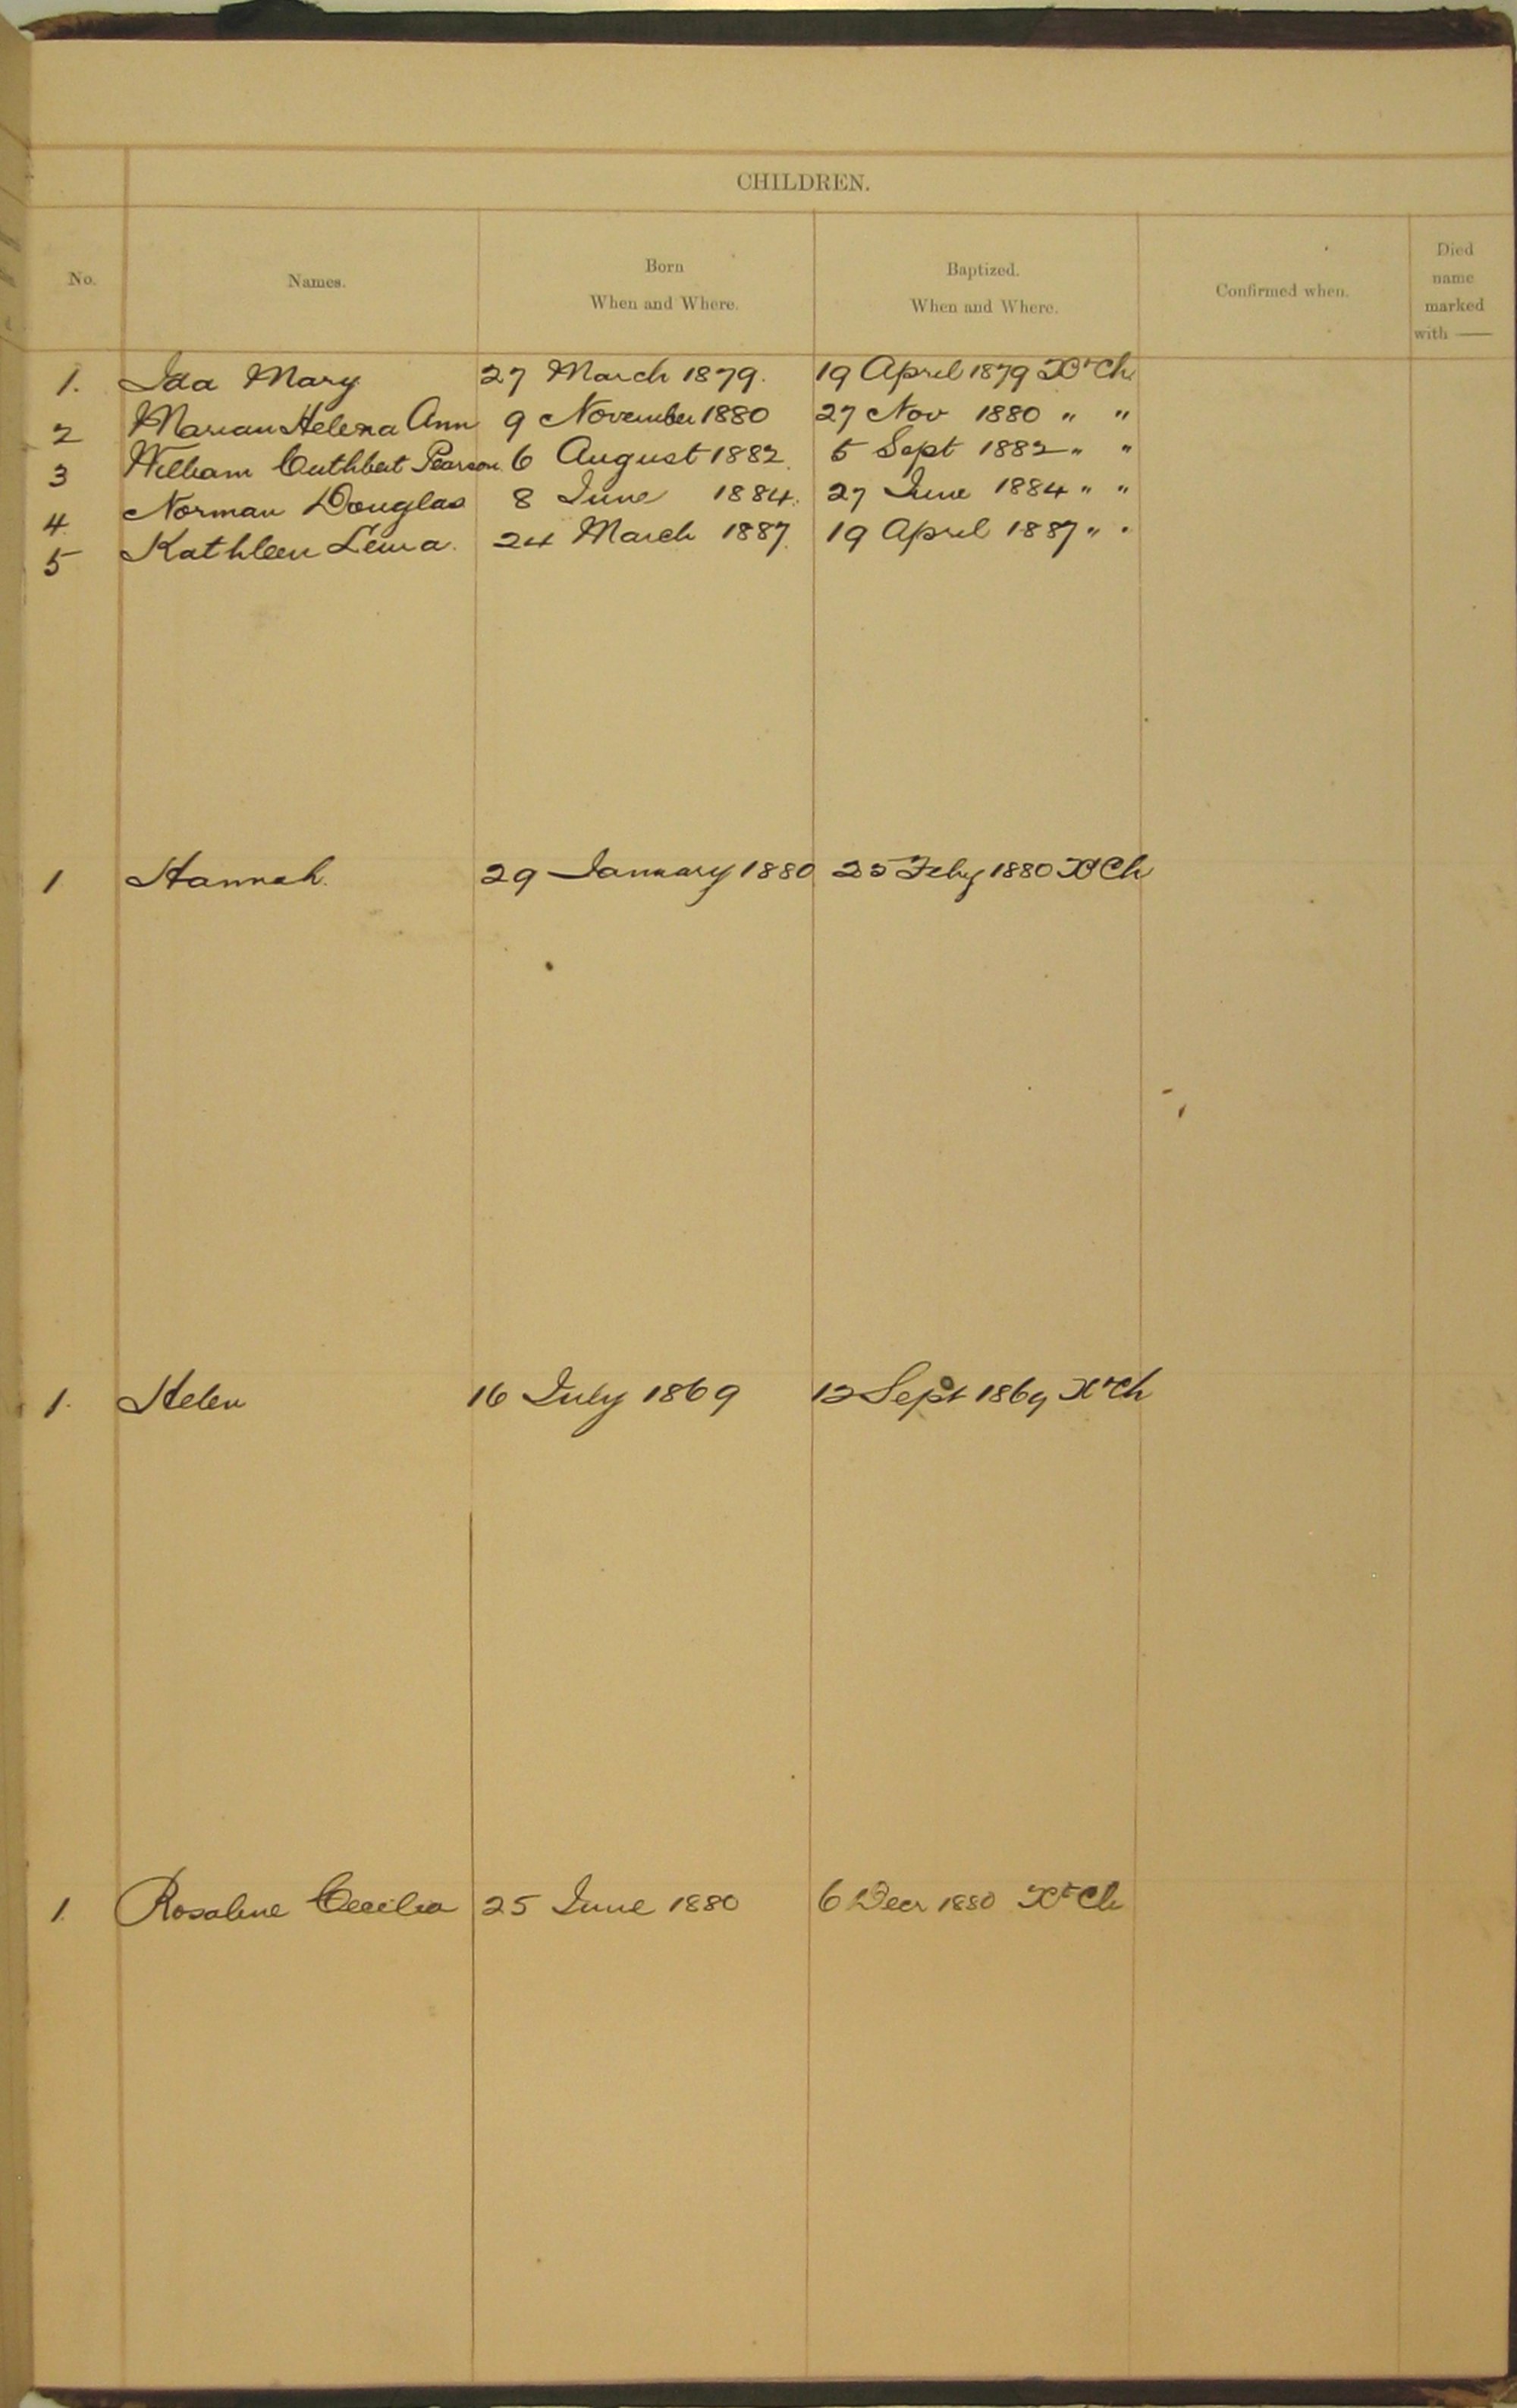 CHILDREN.
No. Names. Born When and Where. Baptized. When and Where. Confirmed when. Died name marked with ——
1. Ida Mary 27 March 1879. 19 April 1879 Xt Ch
2 Marian Helena Ann 9 November 1880 27 Nov 1880 " "
3 William Cuthbert Pearson 6 August 1882. 5 Sept 1882 " "
4. Norman Douglas 8 June 1884. 27 June 1884 " "
5 Kathleen 24 March 1887. 19 April 1887 " "
1 Hannah. 29 January 1880 25 Feby 1880 Xt Ch
1. Helen 16 July 1869 12 Sept 1869 Xt Ch
1. Rosaline Cecilia 25 June 1880 6 Decr 1880 Xt Ch